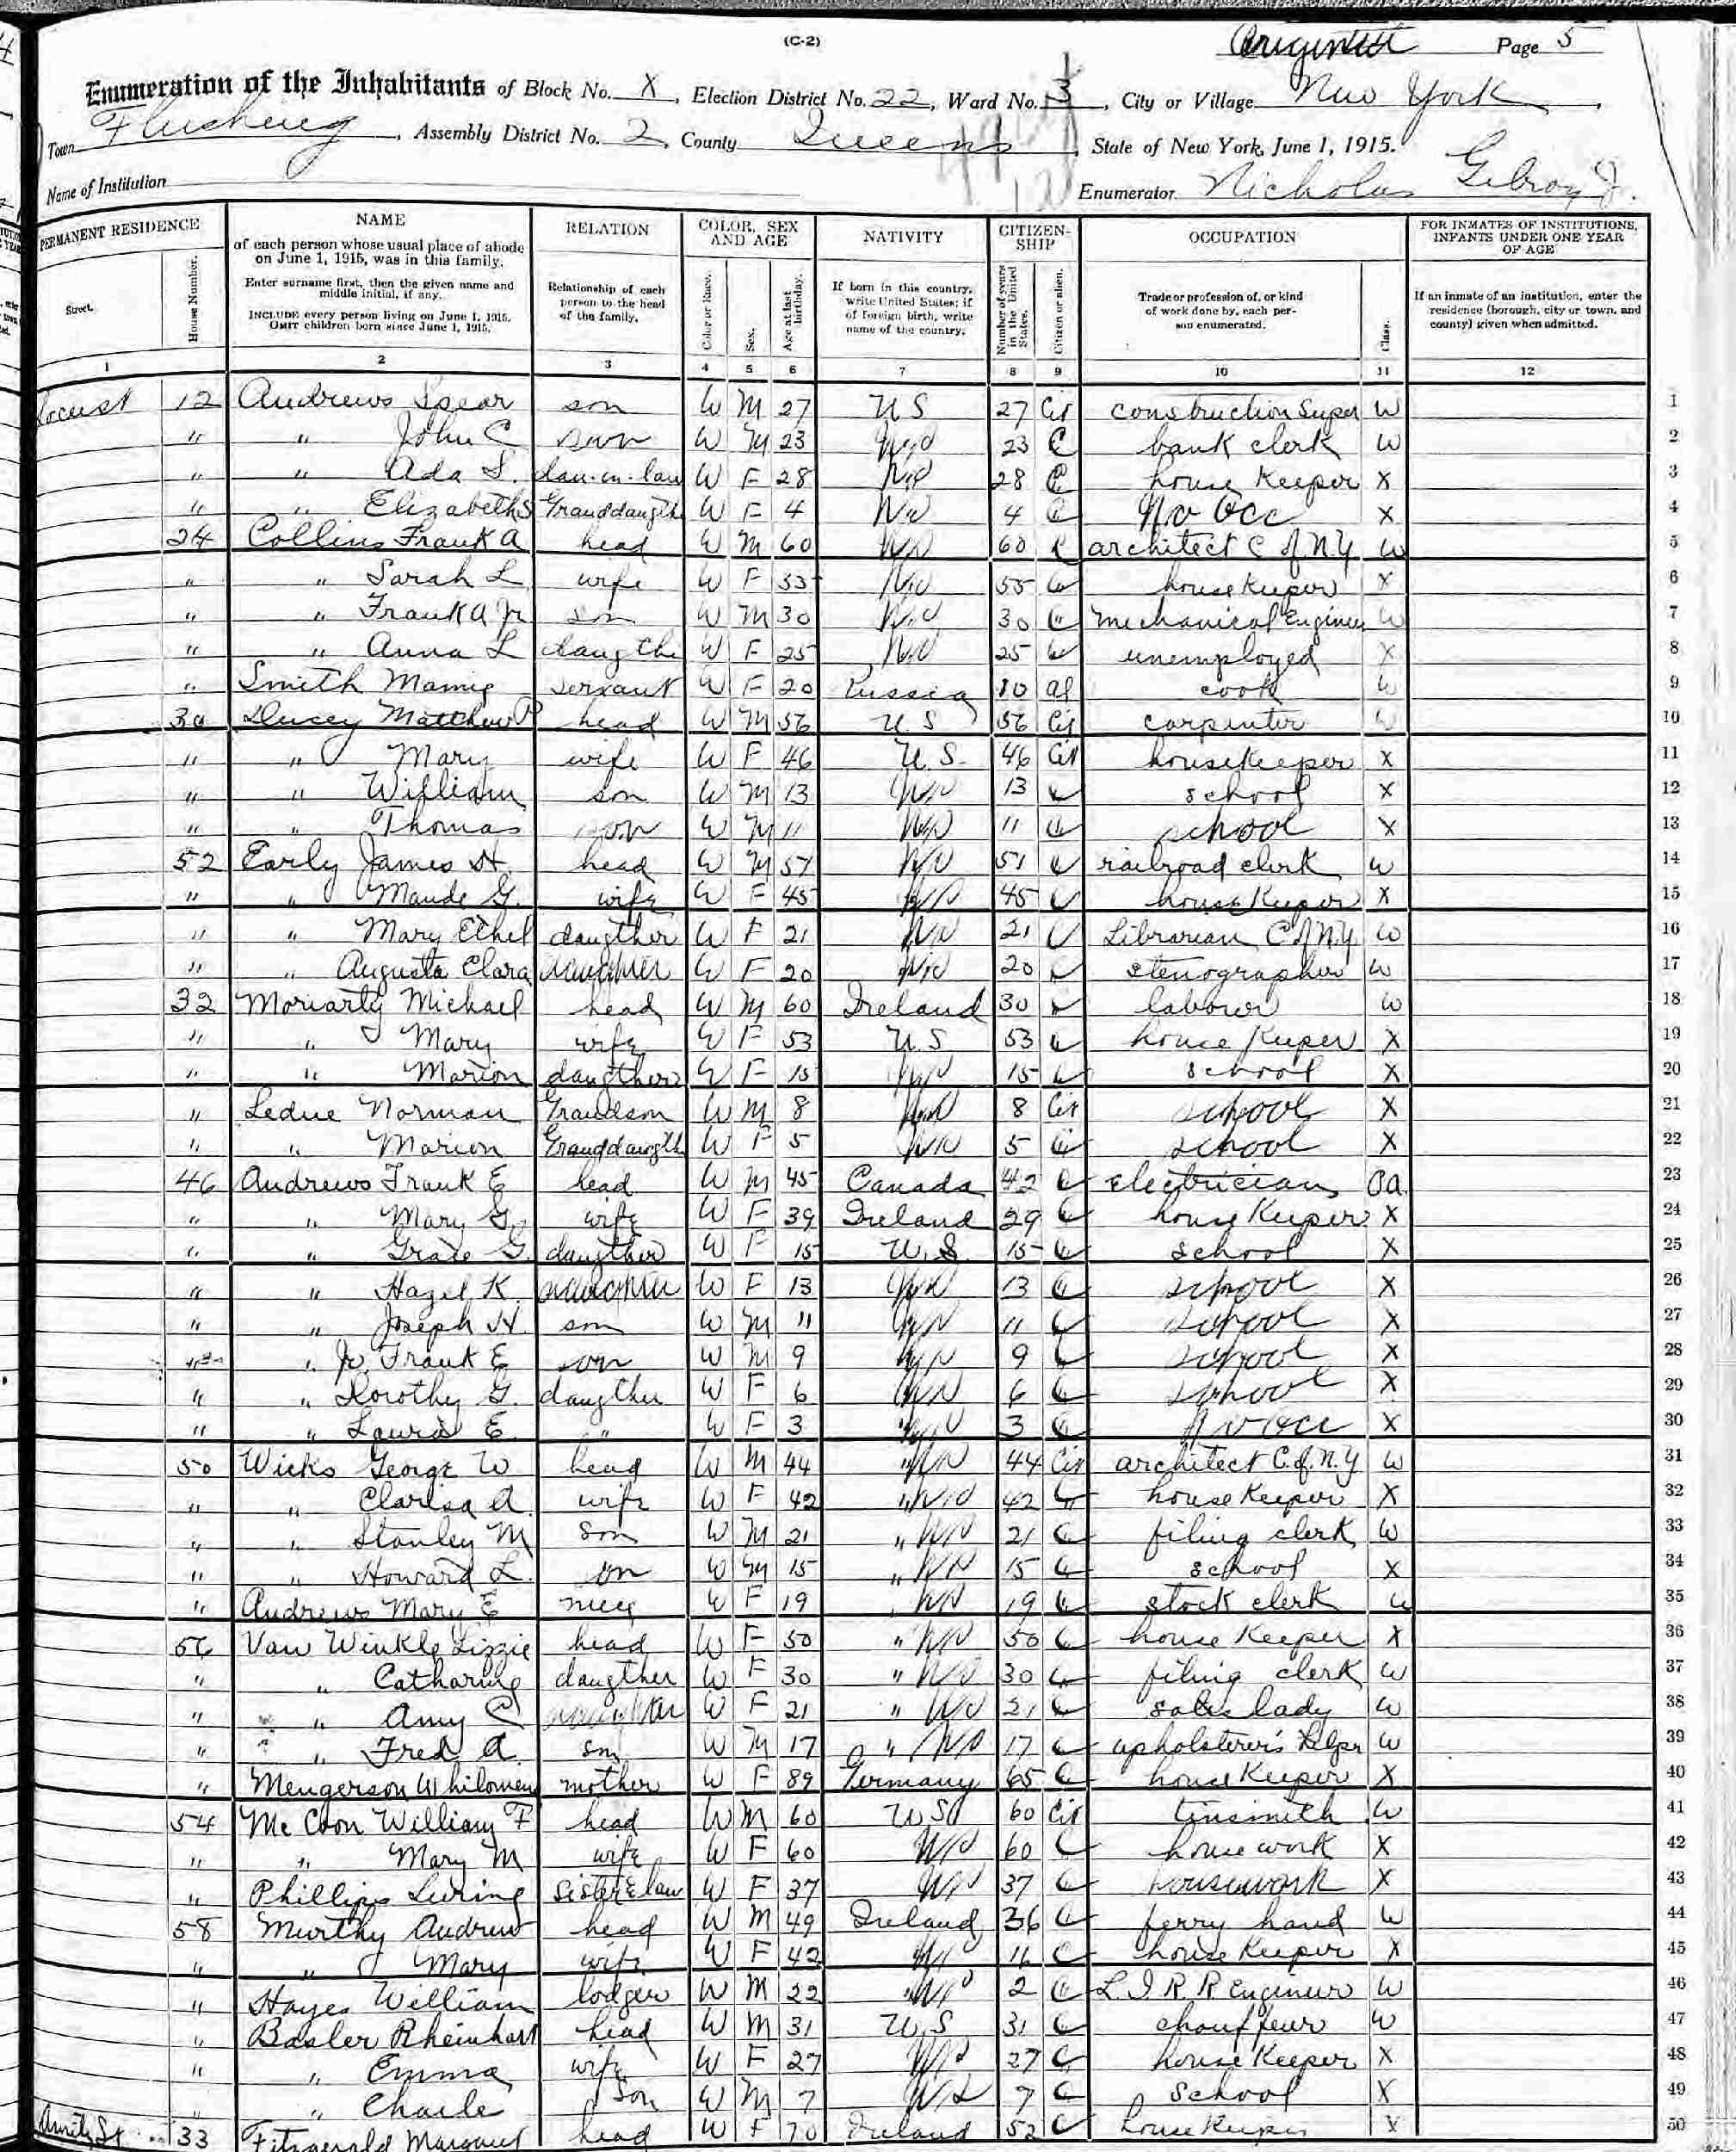 (C-2)
Original Page 5
Enumeration of the Inhabitants of Block No. X, Election District No. 22, Ward No. 3, City or Village New York,
Town Flushing, Assembly District No. 2, County Queens, State of New York, June 1, 1915.
Name of Institution Enumerator Nicholas Gilroy Jr.
PERMANENT RESIDENCE NAME RELATION COLOR, SEX AND AGE NATIVITY CITIZENSHIP OCCUPATION FOR INMATES OF INSTITUTIONS, INFANTS UNDER ONE YEAR OF AGE
Street. House Number.
of each person whose usual place of abode on June 1, 1915, was in this family.
Enter surname first, then the given name and middle initial, if any.
INCLUDE every person living on June 1, 1915. OMIT children born since June 1, 1915.
Relationship of each person to the head of the family.
Color or Race. Sex. Age at last birthday.
If born in this country, write United States; if of foreign birth, write name of the country.
Number of years in the United States. Citizen or alien.
Trade or profession of, or kind of work done by, each person enumerated. Class.
If an inmate of an institution, enter the residence (borough, city or town, and county) given when admitted.
1 2 3 4 5 6 7 8 9 10 11 12
Locust 12 Andrews Spear son W M 27 U S 27 Cit construction Super W 1
" " John C son W M 23 23 C bank clerk W 2
" " Ada S. dau-in-law W F 28 28 C house Keeper X 3
" " Elizabeth S Granddaugth W F 4 4 C No Occ X 4
24 Collins Frank A head W M 60 60 C architect C of N.Y. W 5
" " Sarah L wife W F 55 55 C house keeper X 6
" " Frank A Jr son W M 30 30 C mechanical Engineer W 7
" " Anna L daugthe W F 25 25 C unemployed X 8
" Smith Mamie servant W F 20 Russia 10 al cook W 9
30 Ducey Matthew P head W M 56 U S 56 Cit carpenter W 10
" " Mary wife W F 46 U.S. 46 Cit housekeeper X 11
" " William son W M 13 13 C school X 12
" " Thomas son W M 11 11 C school X 13
52 Early James H head W M 51 51 C railroad clerk W 14
" " Maude G. wife W F 45 45 C house Keeper X 15
" " Mary Ethel daugther W F 21 21 C Librarian C of N.Y. W 16
" " Augusta Clara daughter W F 20 20 C stenographer W 17
32 Moriarty Michael head W M 60 Ireland 30 C laborer W 18
" " Mary wife W F 53 U.S 53 C house Keeper X 19
" " Marion daugther W F 15 15 C school X 20
" Ledue Norman Grandson W M 8 8 Cit school X 21
" " Marion Granddaugth W F 5 5 C school X 22
46 Andrews Frank E head W M 45 Canada 42 C electrician Oa 23
" " Mary G. wife W F 39 Ireland 29 C house Keeper X 24
" " Grace G. daugther W F 15 U.S. 15 C school X 25
" " Hazel K daughter W F 13 13 C school X 26
" " Joseph H. son W M 11 11 C school X 27
" " Jr. Frank E son W M 9 9 C school X 28
" " Dorothy G. daugther W F 6 6 C school X 29
" " Laura E. " W F 3 3 C No occ X 30
50 Wicks George W head W M 44 44 Cit architect C. of N.Y W 31
" " Clarisa A wife W F 42 42 C house Keeper X 32
" " Stanley M son W M 21 21 C filing clerk W 33
" " Howard L. son W M 15 15 C school X 34
" Andrews Mary E niece W F 19 19 C stock clerk W 35
56 Van Winkle Lizzie head W F 50 50 C house Keeper X 36
" " Catharine daugther W F 30 30 C filing clerk W 37
" " Amy C daughter W F 21 21 C sales lady W 38
" " Fred A. son W M 17 17 C upholsterer's Helper W 39
" Mengerson Whilomen mother W F 89 Germany 65 C house Keeper X 40
54 Mc Coon William F head W M 60 U S 60 Cit tinsmith W 41
" " Mary M wife W F 60 60 C house work X 42
" Phillips Sister E law W F 37 37 C housework X 43
58 Murthy Andrew head W M 49 Ireland 36 C ferry hand W 44
" " Mary wife W F 42 16 C house Keeper X 45
" Hayes William lodger W M 22 2 C L I R R Engineer W 46
" Basler Rheinhart head W M 31 U.S 31 C chauffeur W 47
" " Emma wife W F 27 27 C house Keeper X 48
" " Charle Son W M 7 7 C School X 49
Amity St. 33 Fitzgerald Margaret head W F 70 Ireland 52 C house Keeper X 50